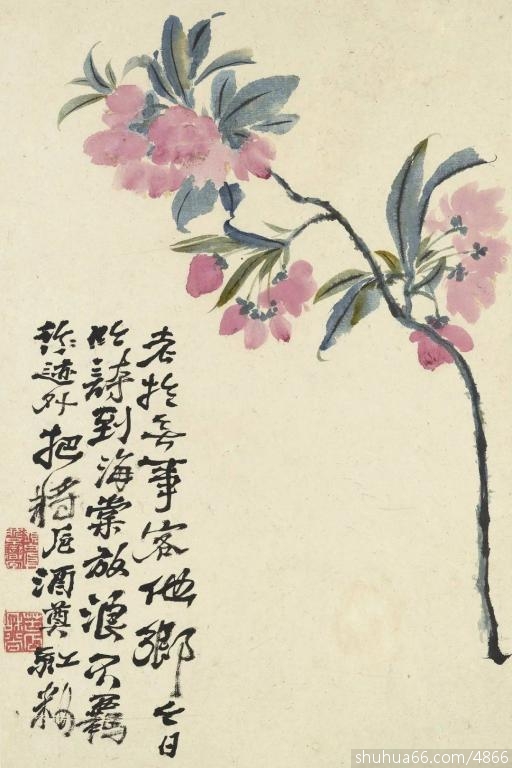 老於無事客他鄉今日
吟詩到海棠放浪不羈
形迹外把將卮酒奠紅粉
shuhua66.com/4866